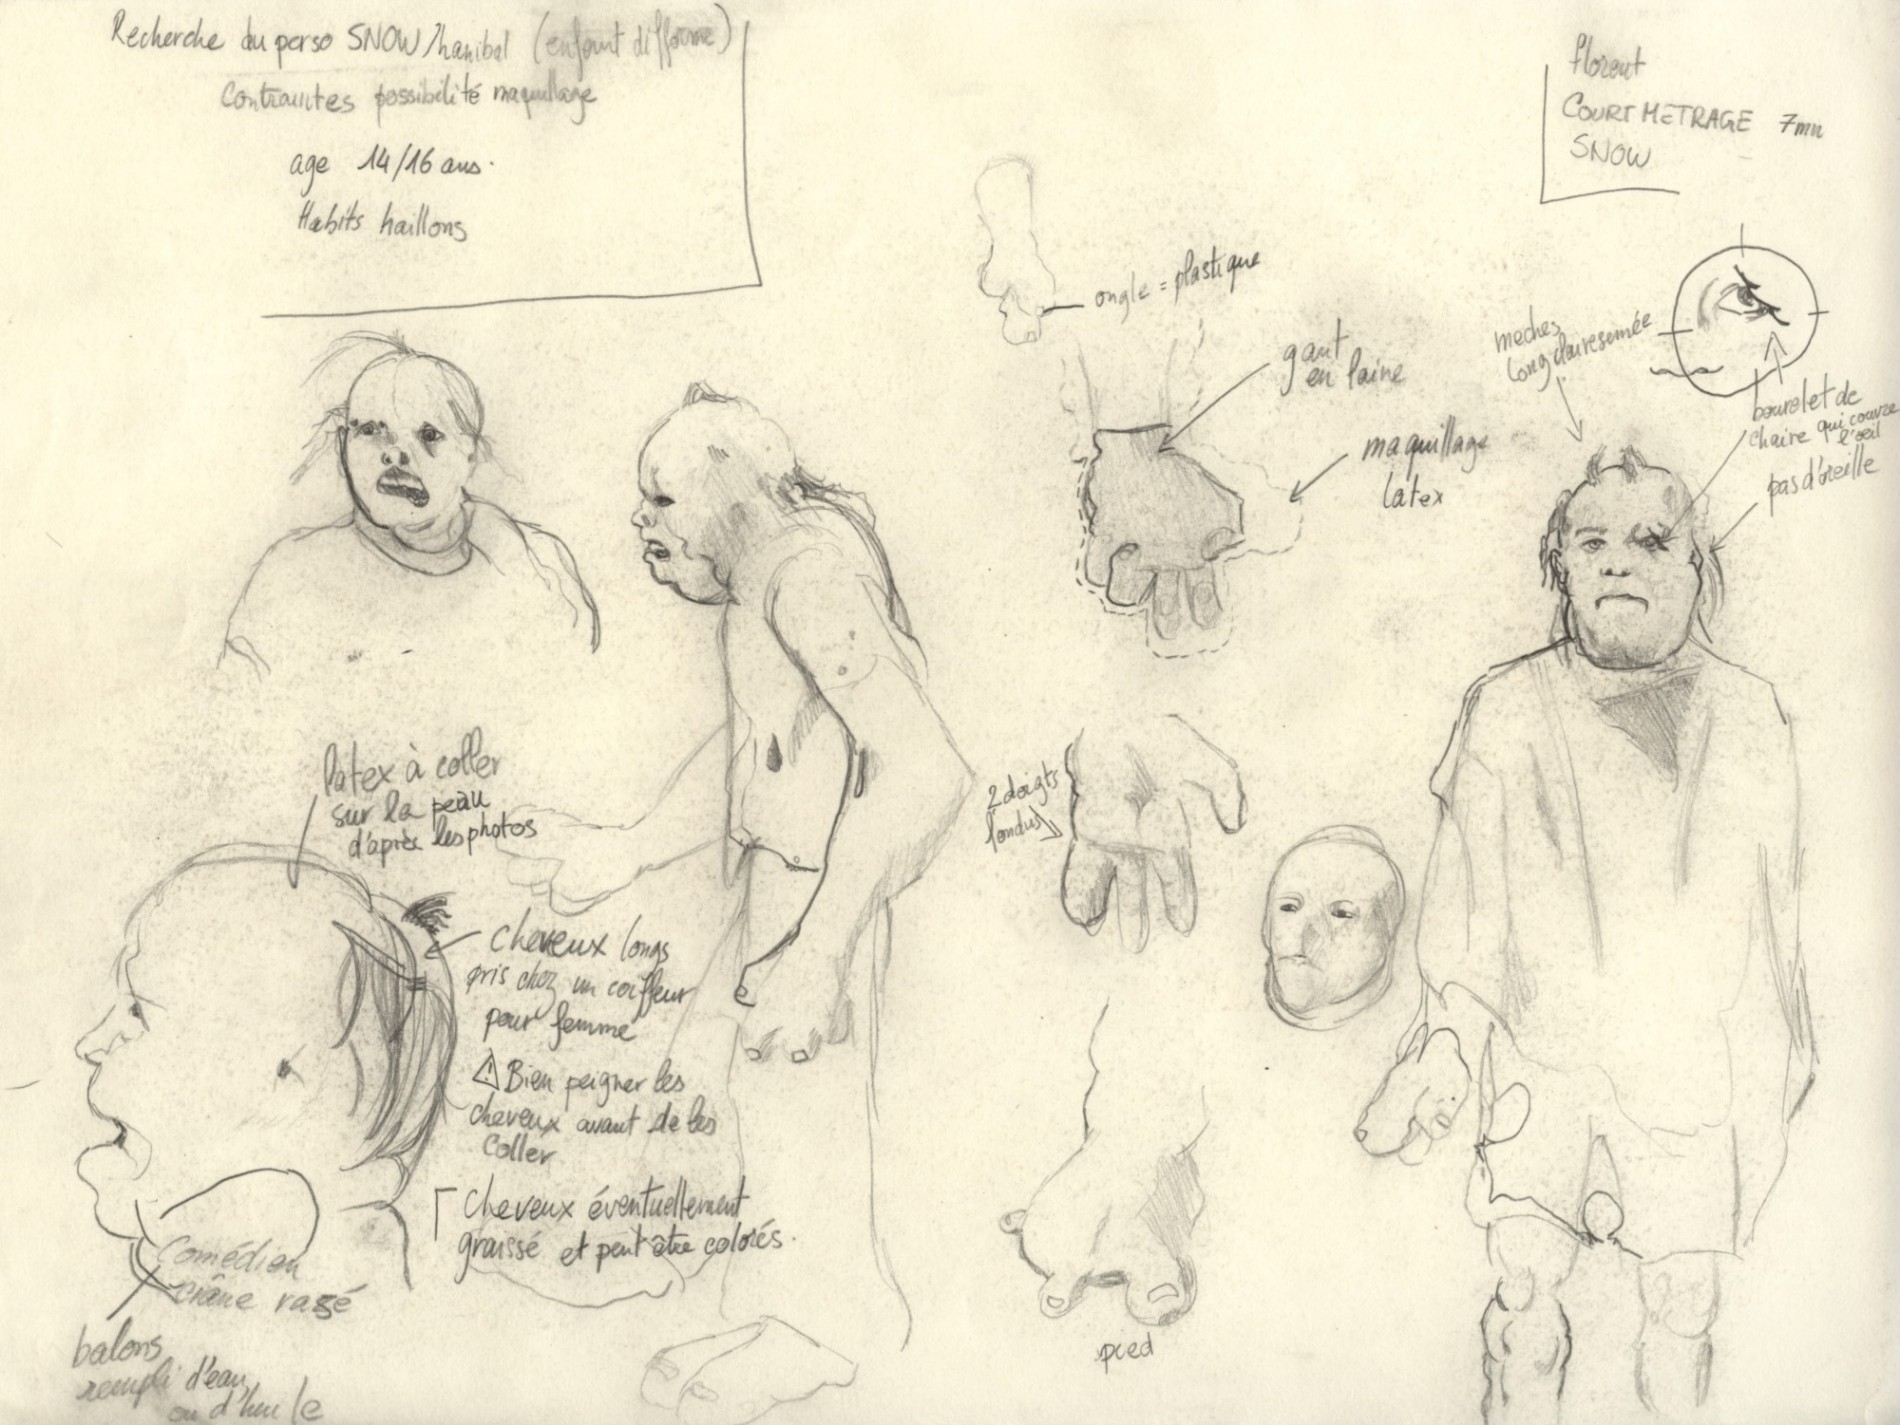 Recherche du perso SNOW/hanibal (enfant difforme)
Contraintes possibilité maquillage
age 14/16 ans.
Habits haillons
florent
COURT METRAGE 7mn
SNOW
ongle = plastique
gant
en laine
maquillage
latex
meches
long clairesemée
bourelet de
chaire qui couvre
l'œil
pas d'oreille
latex à coller
sur la peau
d'après les photos
2 doigts
fondus
cheveux longs
pris chez un coiffeur
pour femme
⚠ Bien peigner les
cheveux avant de les
coller
cheveux éventuellement
graissé et peut être colorés.
Comédien
crâne rasé
balons
rempli d'eau
ou d'huile
pied